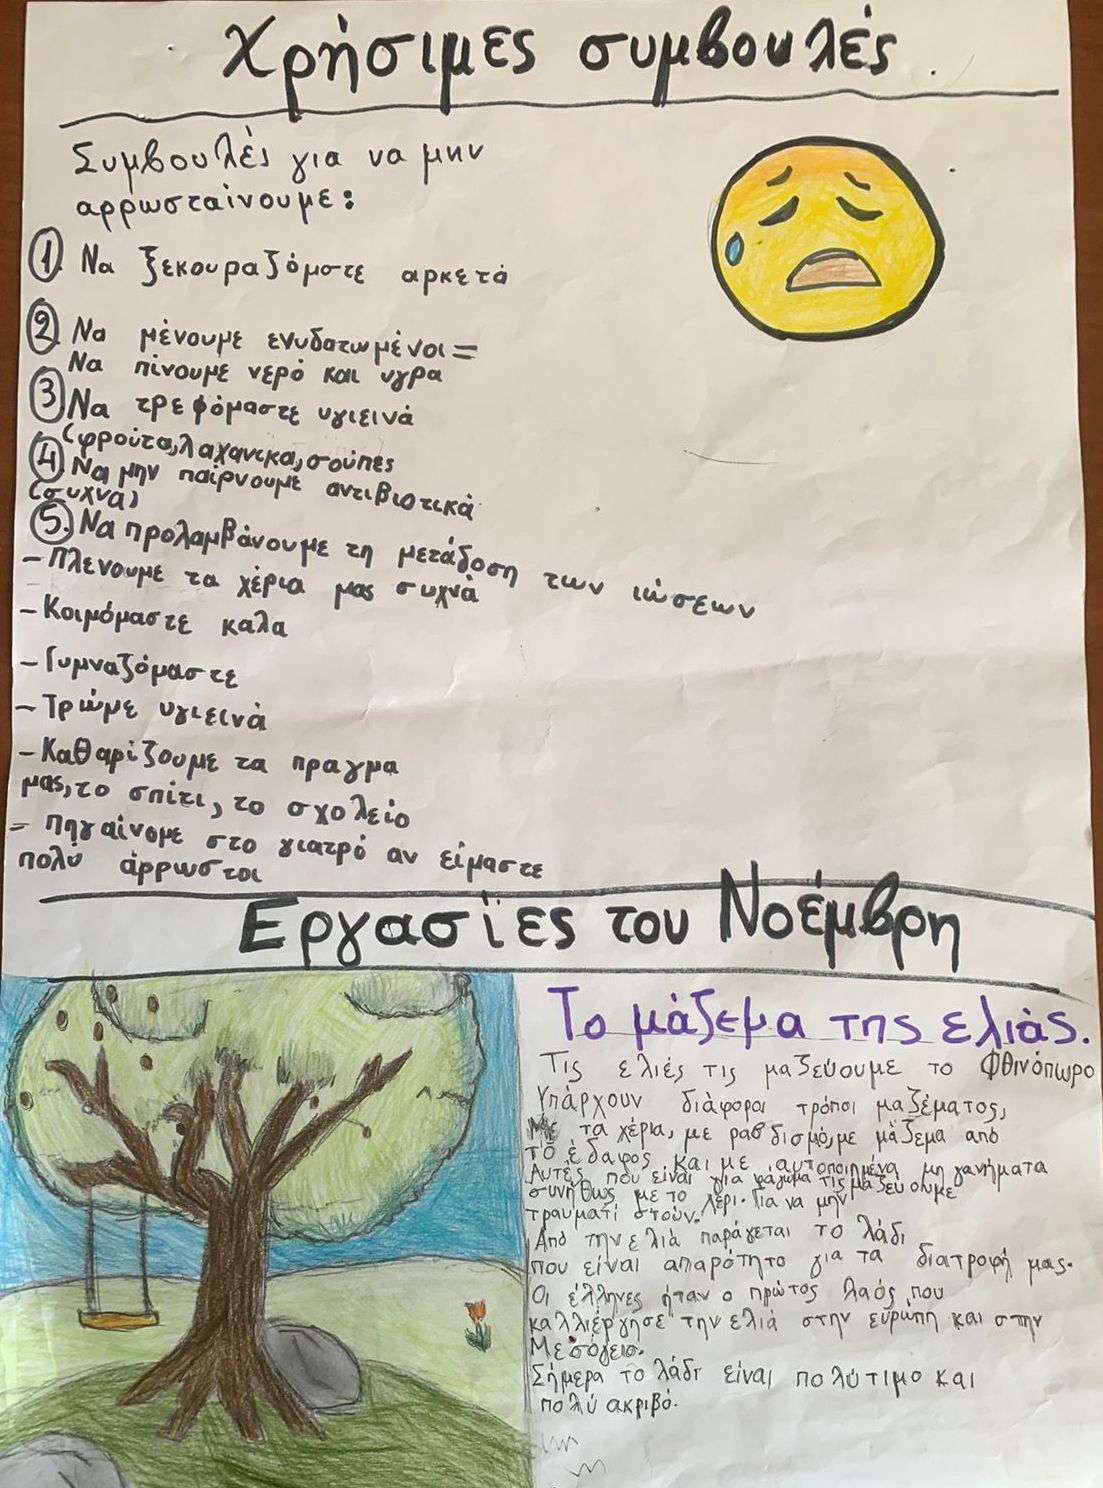 Χρήσιμες συμβουλές
Συμβουλές για να μην
αρρωσταίνουμε:
1. Να ξεκουραζόμστε αρκετά
2. Να μένουμε ενυδατωμένοι =
Να πίνουμε νερό και υγρα
3 Να τρεφόμαστε υγιεινά
(φρούτα, λαχανικα, σούπες
4. Να μην παίρνουμε αντιβιοτικά
(συχνά)
5. Να προλαμβάνουμε τη μετάδοση των ιώσεων
- Πλενουμε τα χέρια μας συχνά
- Κοιμόμαστε καλα
- Γυμναζόμαστε
- Τρώμε υγιεινά
- Καθαρίζουμε τα πραγμα
μας, το σπίτι, το σχολείο
- πηγαίνομε στο γιατρό αν είμαστε
πολύ άρρωστοι
Εργασίες του Νοέμβρη
Το μάζεμα της ελιάς.
Τις ελιές τις μαζεύουμε το Φθινόπωρο
Υπάρχουν διάφοροι τρόποι μαζέματος,
Με τα χέρια, με ραβδισμό, με μάζεμα από
το έδαφος και με αυτοποιημένα μηχανήματα
Αυτές που είναι για φάγωμα τις μαζεύουμε
συνήθως με το χέρι. Για να μην
τραυματίστούν.
Από την ελιά παράγεται το λάδι
που είναι απαρότητο για τα διατροφή μας.
Οι έλληνες ήταν ο πρώτος λαός που
καλλιέργησε την ελιά στην ευρώπη και στην
Μεσόγειο.
Σήμερα το λάδι είναι πολύτιμο και
πολύ ακριβό.